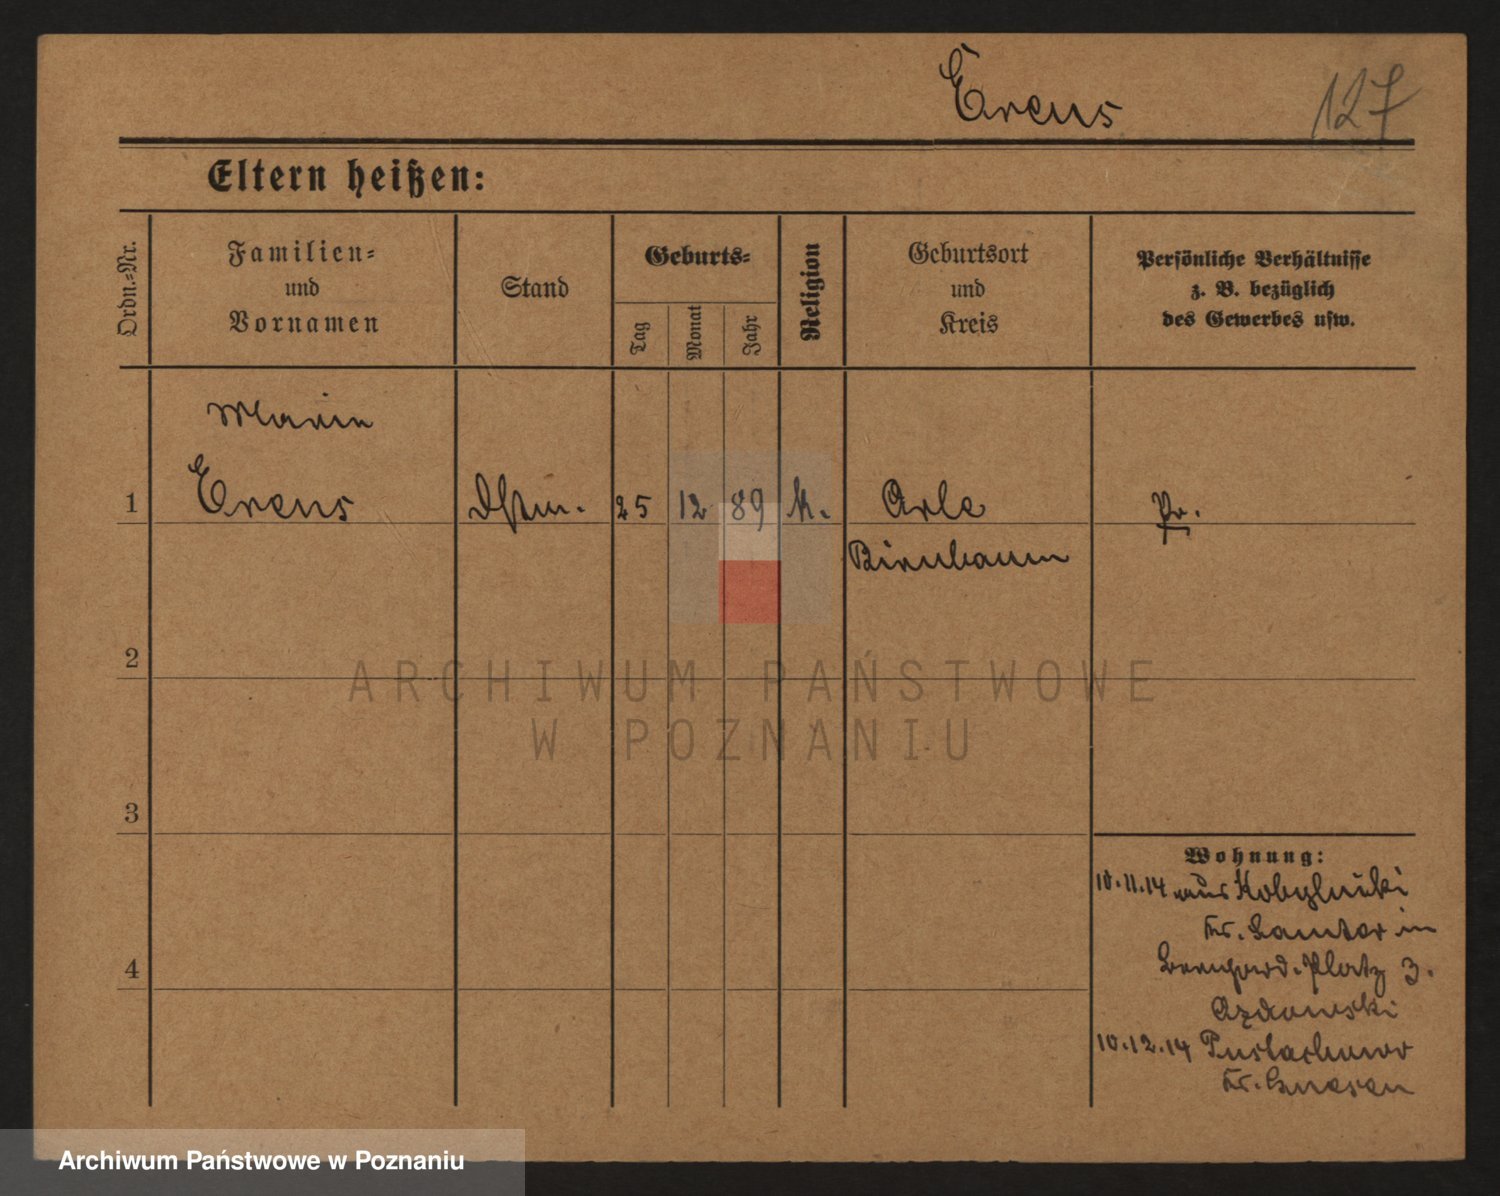 Erens
127
Eltern heißen:
Ordn.-Nr.
Familien- und Vornamen
Stand
Geburts-
Tag
Monat
Jahr
Religion
Geburtsort und Kreis
Persönliche Verhältnisse
z. B. bezüglich
des Gewerbes usw.
Marie
1 Erens Dstm. 25 12 89 k. Orle Pr.
Birnbaum
2
ARCHIWUM PAŃSTWOWE
W POZNANIU
3
Wohnung:
10.11.14 aus Kobylniki
Kr. Samter in
Platz 3.
4
10.12.14 Pustachowo
Kr. Gnesen
Archiwum Państwowe w Poznaniu